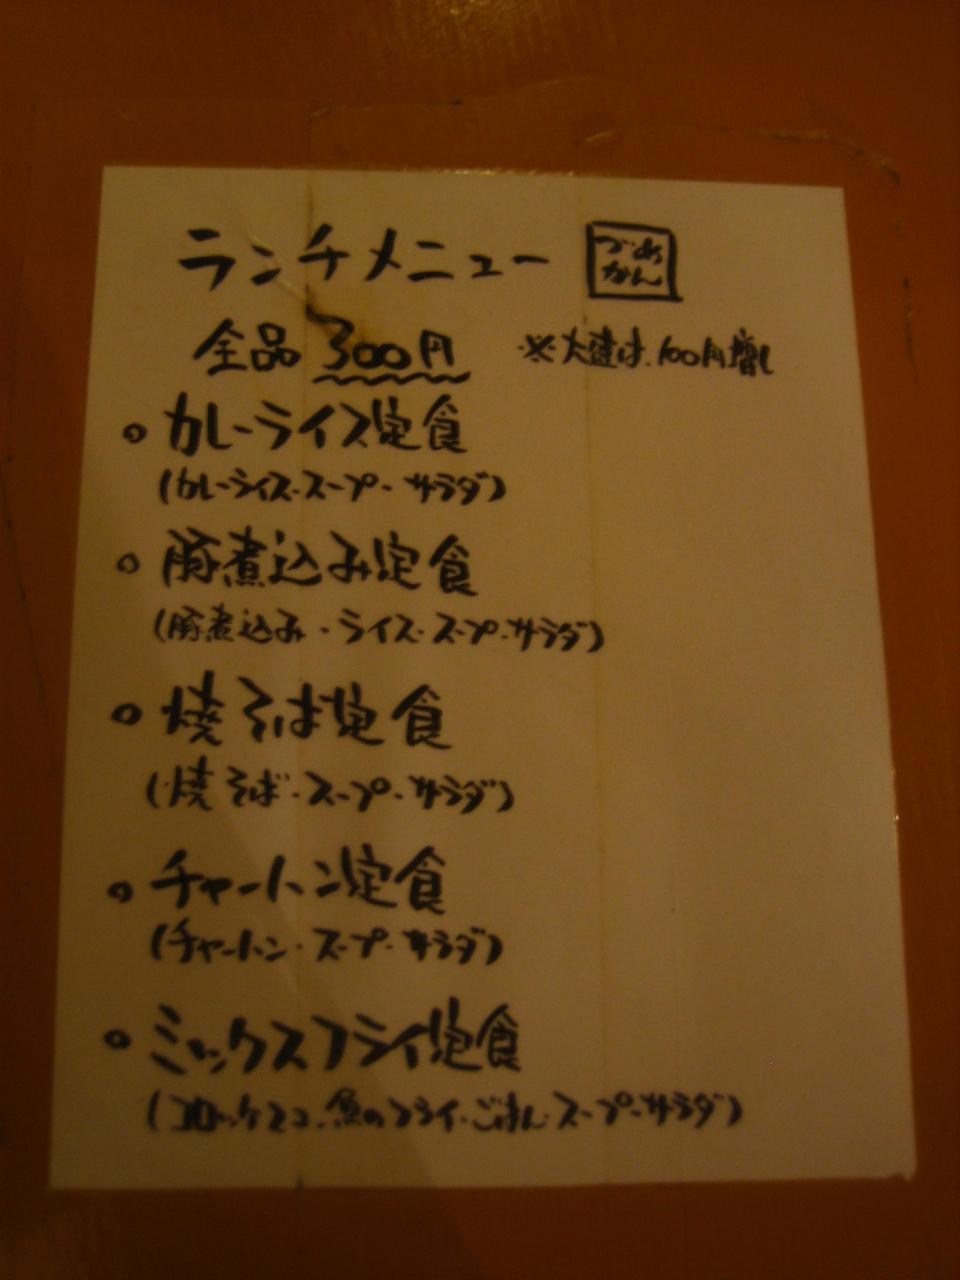 ランチメニュー
づめ
かん
全品 300円 ※大盛は、100円増し
カレーライス定食
(カレーライス・スープ・サラダ)
豚煮込み定食
(豚煮込み・ライス・スープ・サラダ)
焼そば定食
(焼そば・スープ・サラダ)
チャーハン定食
(チャーハン・スープ・サラダ)
ミックスフライ定食
(コロッケ2コ・魚のフライ・ごはん・スープ・サラダ)